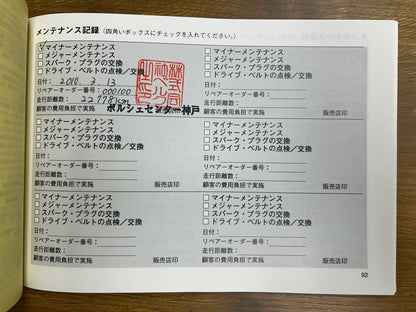 メンテナンス記録 (四角いボックスにチェックを入れてください。)
マイナーメンテナンス
メジャーメンテナンス
スパーク・プラグの交換
ドライブ・ベルトの点検／交換
日付: 2010. 2. 13
リペアーオーダー番号: 000100
走行距離数: 22778km
顧客の費用負担で実施
ポルシェセンター神戸
マイナーメンテナンス
メジャーメンテナンス
スパーク・プラグの交換
ドライブ・ベルトの点検／交換
日付:
リペアーオーダー番号:
走行距離数:
顧客の費用負担で実施 販売店印
マイナーメンテナンス
メジャーメンテナンス
スパーク・プラグの交換
ドライブ・ベルトの点検／交換
日付:
リペアーオーダー番号:
走行距離数:
顧客の費用負担で実施 販売店印
マイナーメンテナンス
メジャーメンテナンス
スパーク・プラグの交換
ドライブ・ベルトの点検／交換
日付:
リペアーオーダー番号:
走行距離数:
顧客の費用負担で実施 販売店印
マイナーメンテナンス
メジャーメンテナンス
スパーク・プラグの交換
ドライブ・ベルトの点検／交換
日付:
リペアーオーダー番号:
走行距離数:
顧客の費用負担で実施 販売店印
マイナーメンテナンス
メジャーメンテナンス
スパーク・プラグの交換
ドライブ・ベルトの点検／交換
日付:
リペアーオーダー番号:
走行距離数:
顧客の費用負担で実施 販売店印
92